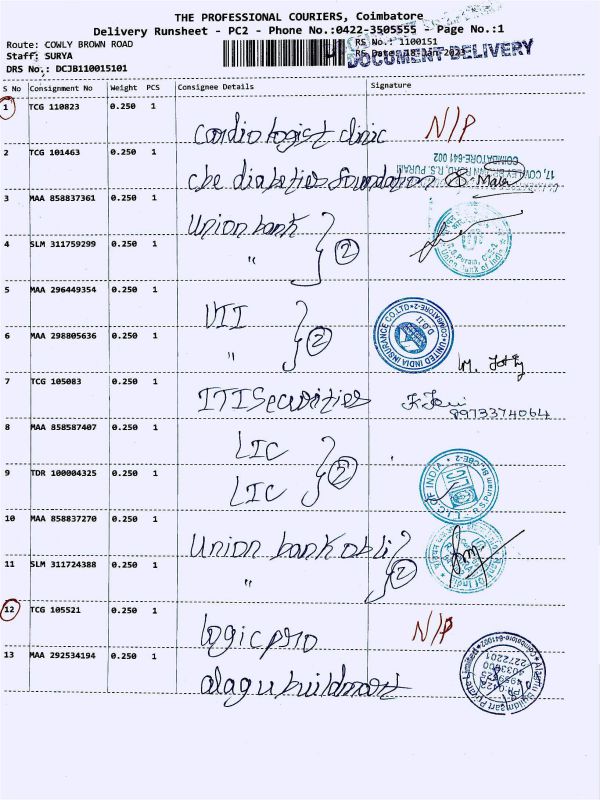 THE PROFESSIONAL COURIERS, Coimbatore
Delivery Runsheet - PC2 - Phone No.:0422-3505555 - Page No.:1
Route: COWLY BROWN ROAD
RS No.: 1100151
Staff: SURYA
RS Date:
DOCUMENT-DELIVERY
DRS No.: DCJB110015101
S No Consignment No Weight PCS Consignee Details Signature
1 TCG 110823 0.250 1
cardio logist clinic N/P
2 TCG 101463 0.250 1
17, COWLEY BROWN ROAD, R.S. PURAM
COIMBATORE-641 002
cbe diabetics foundation
3 MAA 858837361 0.250 1
Union bank
R.S.Puram, CBE-2
Union Bank of India
4 SLM 311759299 0.250 1
" 2
5 MAA 296449354 0.250 1
VII
UNITED INDIA INSURANCE CO.LTD
COIMBATORE-2
6 MAA 298805636 0.250 1
" 2
7 TCG 105083 0.250 1
ITI Securities
9973374064
8 MAA 858587407 0.250 1
LIC
L.I.C. OF INDIA
R.S.Puram Br. CBE-2
9 TDR 100004325 0.250 1
LIC 2
10 MAA 858837270 0.250 1
Union bank obli
11 SLM 311724388 0.250 1
" 2
12 TCG 105521 0.250 1
logicpro N/P
13 MAA 292534194 0.250 1
alagu buildmart
Alagu Buildmart Private Limited
Coimbatore-641002
2272201